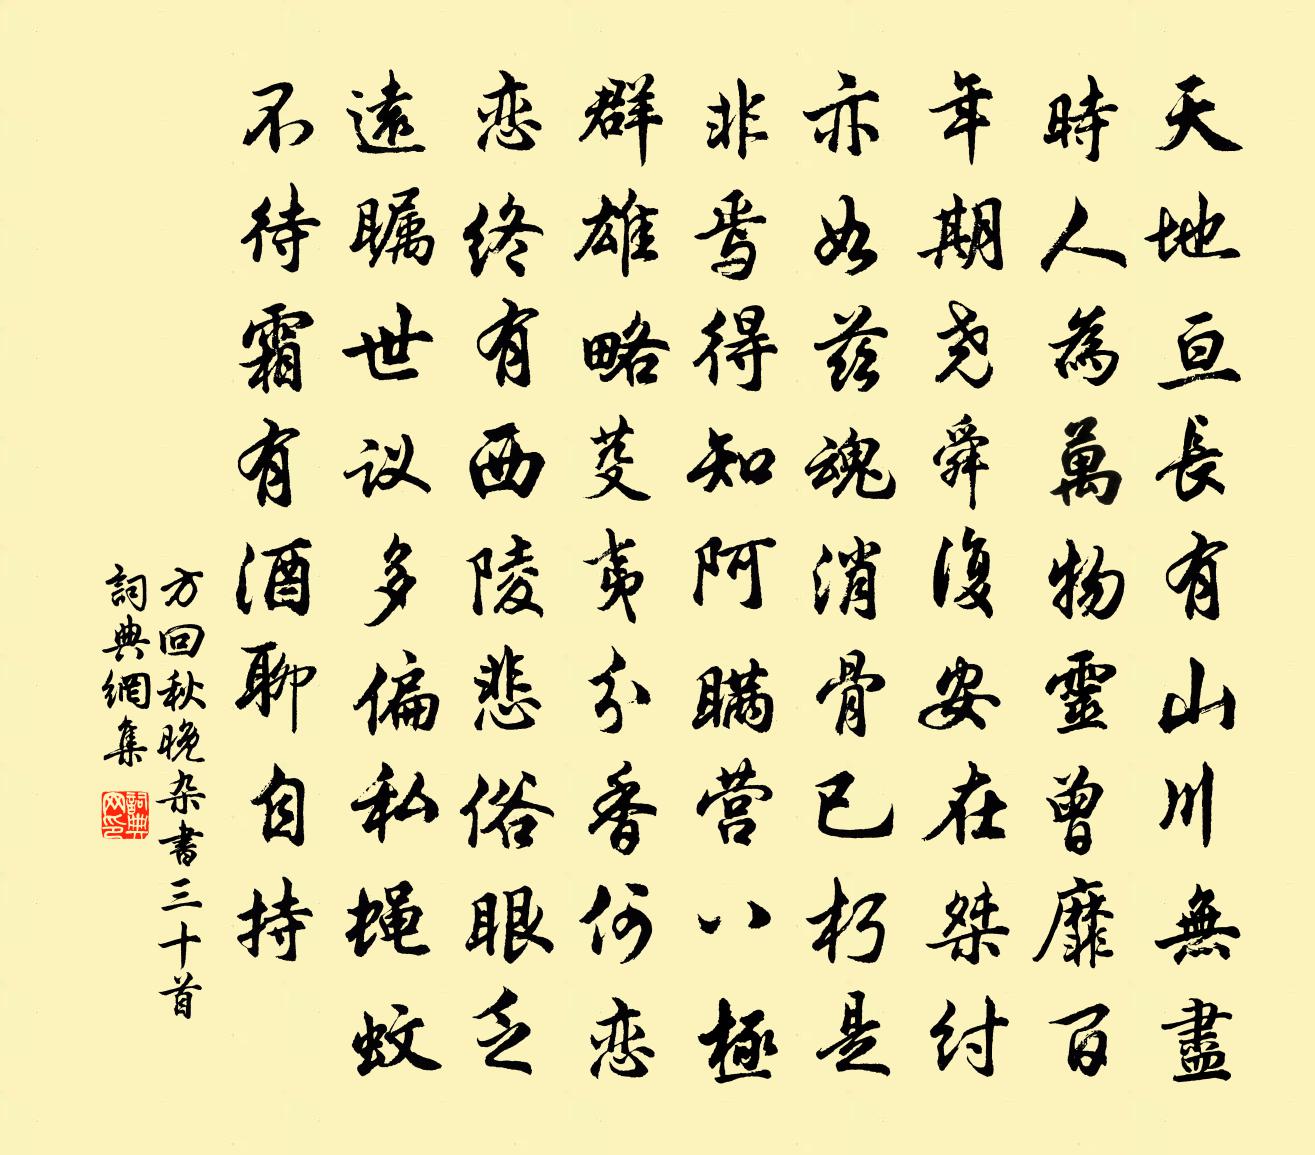 天地亘長有山川無盡
時人為萬物靈曾靡百
年期尧舜復安在桀纣
亦如兹魂消骨已朽是
非焉得知阿瞒营八極
群雄略芟夷分香何恋
恋终有西陵悲俗眼乏
遠瞩世议多偏私蝇蚊
不待霜有酒聊自持
方回秋晚杂書三十首
詞典網集
詞典網印